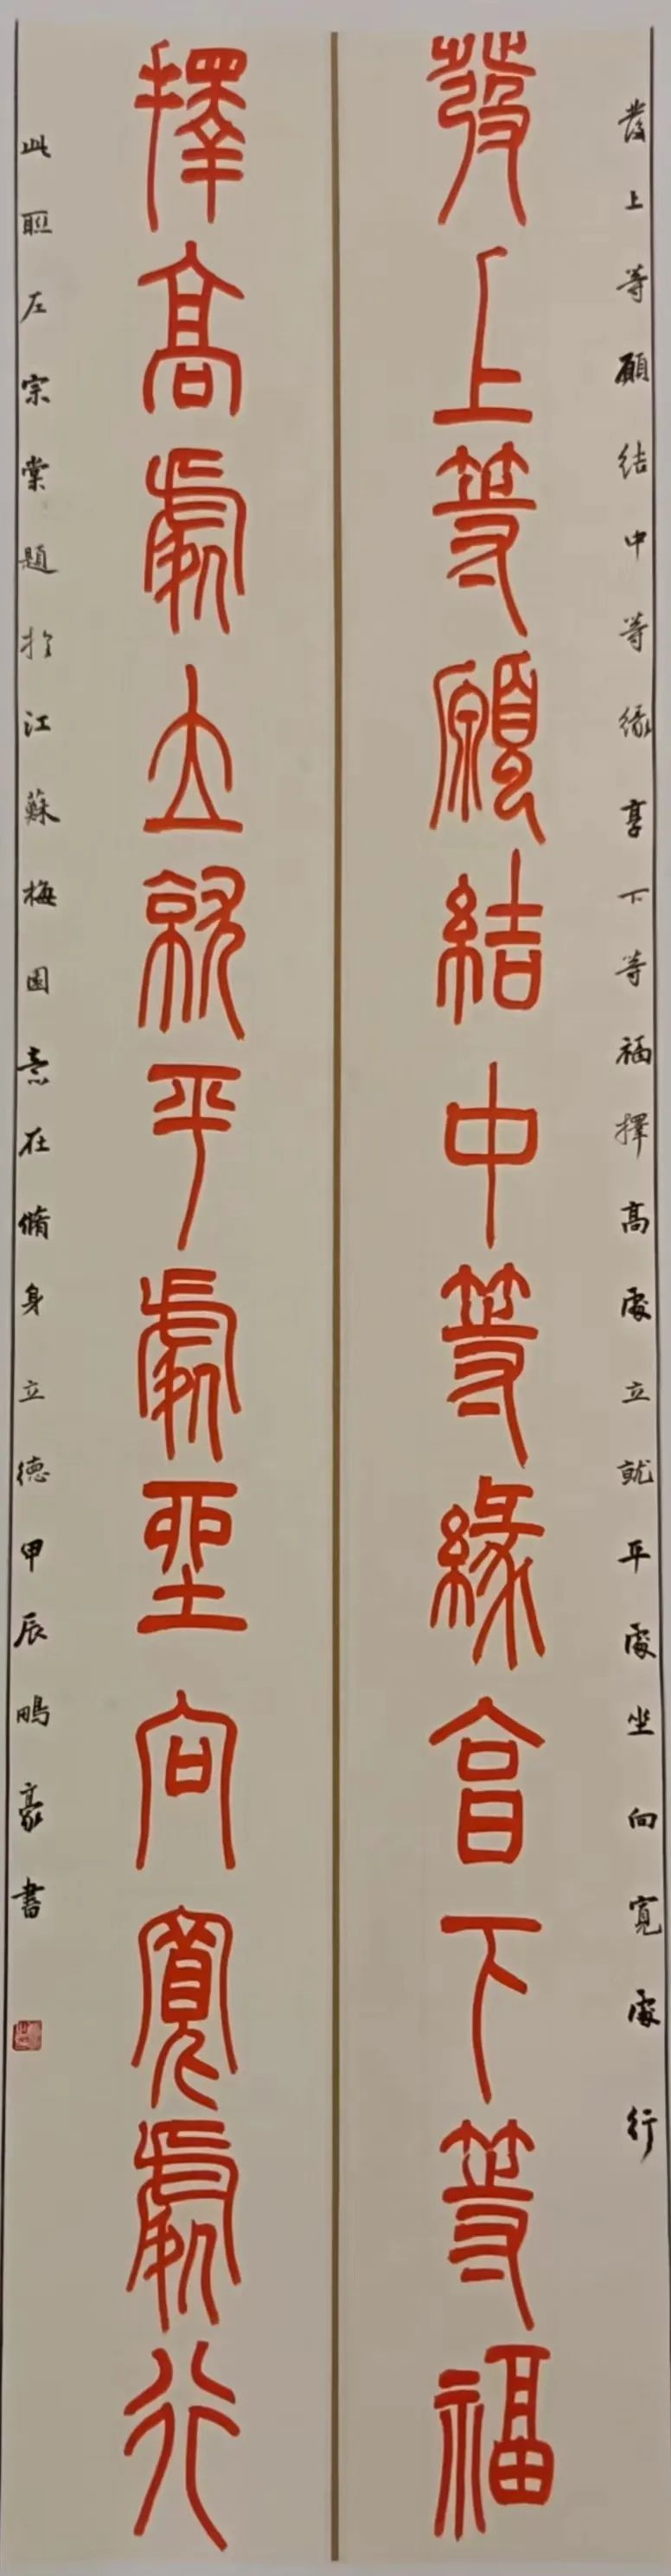 發上等願結中等緣享下等福擇高處立就平處坐向寬處行
發上等願結中等緣享下等福
擇高處立就平處坐向寬處行
此聯左宗棠題於江蘇梅園意在脩身立德甲辰鵬豪書